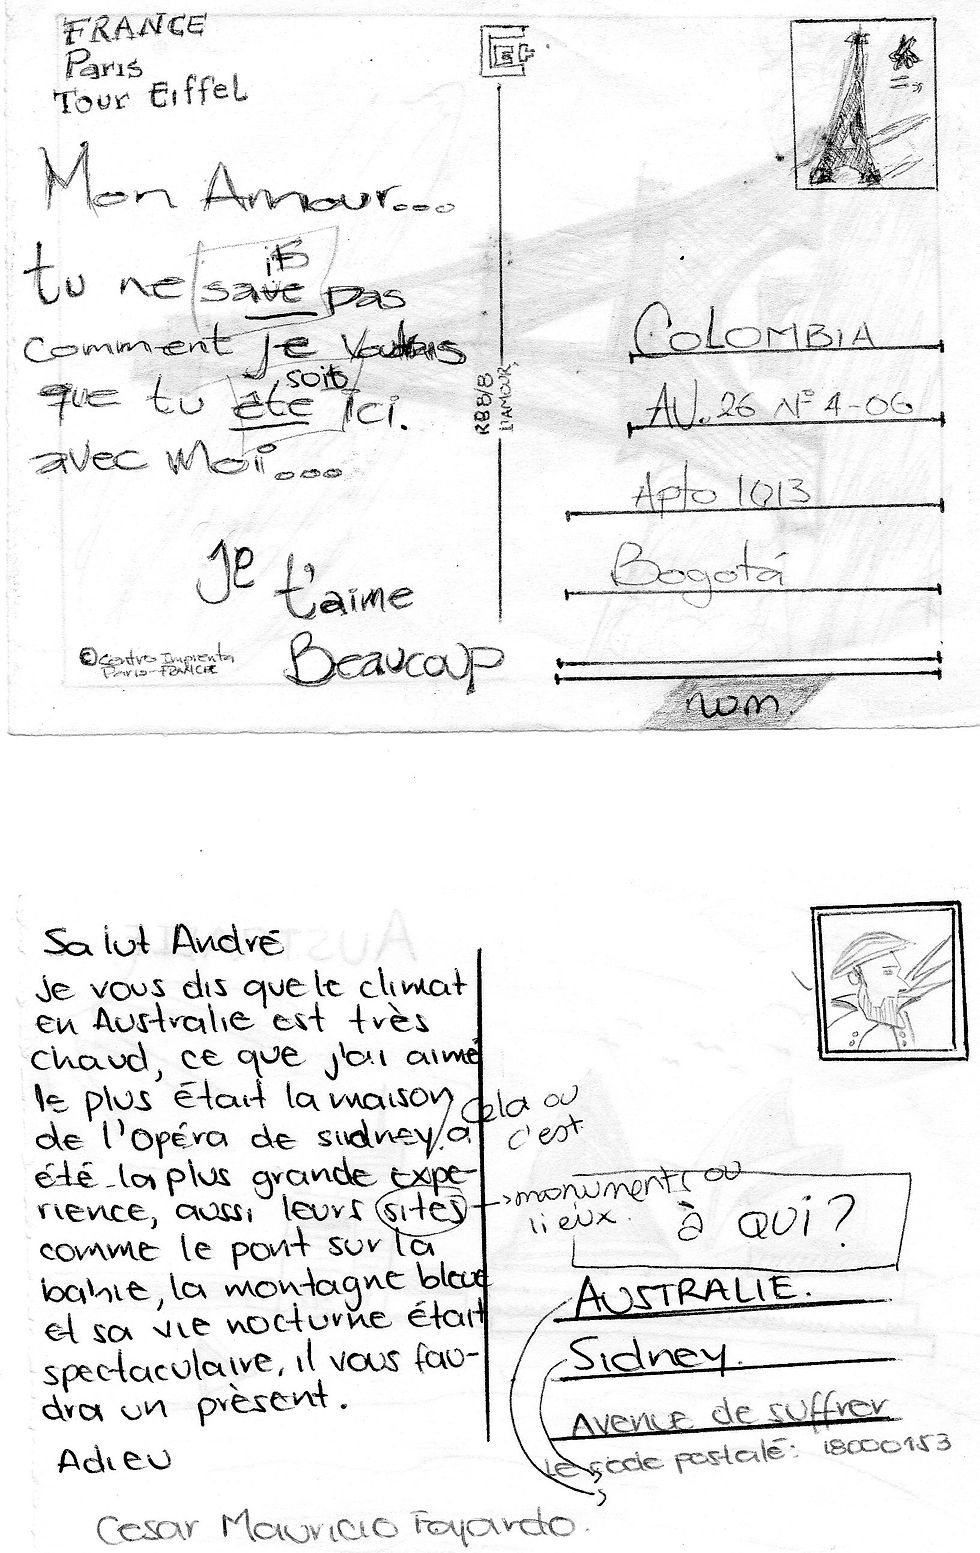 FRANCE
Paris
Tour Eiffel
Mon Amour...
is
tu ne save pas
comment je voudrais
soit
que tu éte ici.
avec moi...
Je
t'aime
Beaucoup
©Centro Imprenta
Paris-FRANCE
RBB/B
L'AMOUR
COLOMBIA
AV. 26 Nº 4-06
Apto 1013
Bogotá
nom.
Salut André
Je vous dis que le climat
en Australie est très
chaud, ce que j'ai aimé
le plus était la maison
de l'opéra de sidney, a
été la plus grande expe-
rience, aussi leurs sites
comme le pont sur la
bahie, la montagne bleue
et sa vie nocturne était
spectaculaire, il vous fau-
dra un prèsent.
Adieu
Cesar Mauricio Fajardo.
cela ou
c'est
monuments ou
lieux.
à QUi?
AUSTRALIE.
Sidney.
Avenue de suffrer
Le code postalé: 18000153